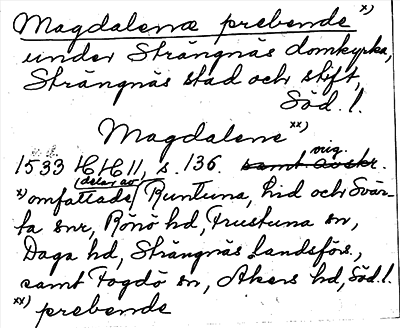 Magdalenæ prebende x)
under Strängnäs domkyrka,
Strängnäs stad och stift,
Söd. l.
Magdalene xx)
orig.
1533 HH 11, s. 136. samt avskr.
(delar av)
x) omfattade Runtuna, Lid och Svär-
ta snr, Rönö hd, Frustuna sn,
Daga hd, Strängnäs landsförs.,
samt Fogdö sn, Åkers hd, Söd. l.
xx) prebende